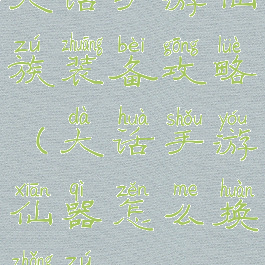 大话手游仙
zú zhuāng bèi gōng lüè
族装备攻略
dà huà shǒu yóu
（大话手游
xiān qì zěn me huàn
仙器怎么换
zhǒng zú